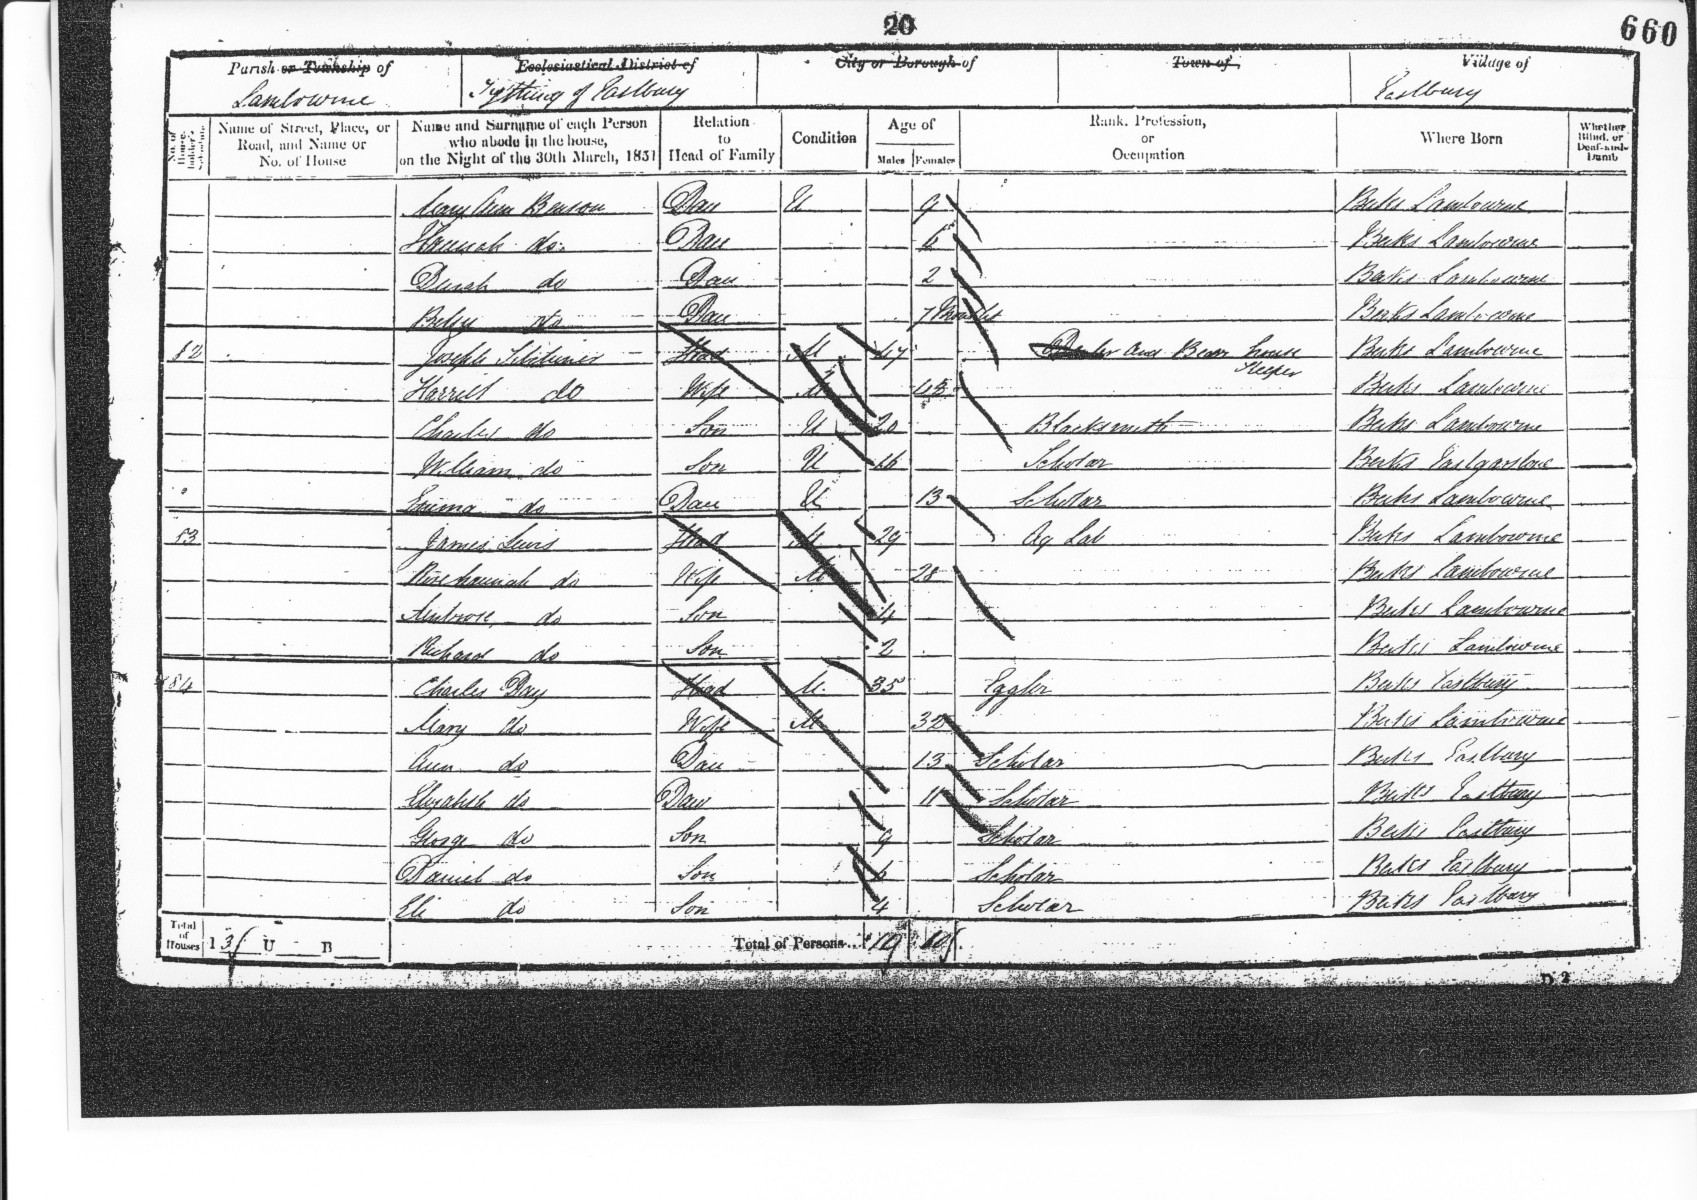 20
660
Parish or Township of
Ecclesiastical District of
City or Borough of
Town of
Village of
Lambourne
Tything of Eastbury
Eastbury
No. of House-holder's Schedule
Name of Street, Place, or Road, and Name or No. of House
Name and Surname of each Person who abode in the house, on the Night of the 30th March, 1851
Relation to Head of Family
Condition
Age of
Males
Females
Rank, Profession, or Occupation
Where Born
Whether Blind, or Deaf-and-Dumb
Mary Ann Benson Dau U 9 Berks Lambourne
Hannah do Dau Berks Lambourne
Dinah do Dau 2 Berks Lambourne
Betsy do Dau 7 Months Berks Lambourne
82 Joseph Head M 47 and Beer house Keeper Berks Lambourne
Harriet do Wife M 45 Berks Lambourne
Charles do Son U 20 Blacksmith Berks Lambourne
William do Son U 16 Scholar Berks Eastgarstone
Emma do Dau U 13 Scholar Berks Lambourne
83 James Lewis Head M 29 Ag Lab Berks Lambourne
Rosehannah do Wife M 28 Berks Lambourne
Ambrose do Son 4 Berks Lambourne
Richard do Son 2 Berks Lambourne
84 Charles Day Head M 35 Eggler Berks Eastbury
Mary do Wife M 32 Berks Lambourne
Ann do Dau 13 Scholar Berks Eastbury
Elizabeth do Daur 11 Scholar Berks Eastbury
George do Son 9 Scholar Berks Eastbury
Daniel do Son 6 Scholar Berks Eastbury
Eli do Son 4 Scholar Berks Eastbury
Total of Houses I 3 U B Total of Persons... 10 10
D 2